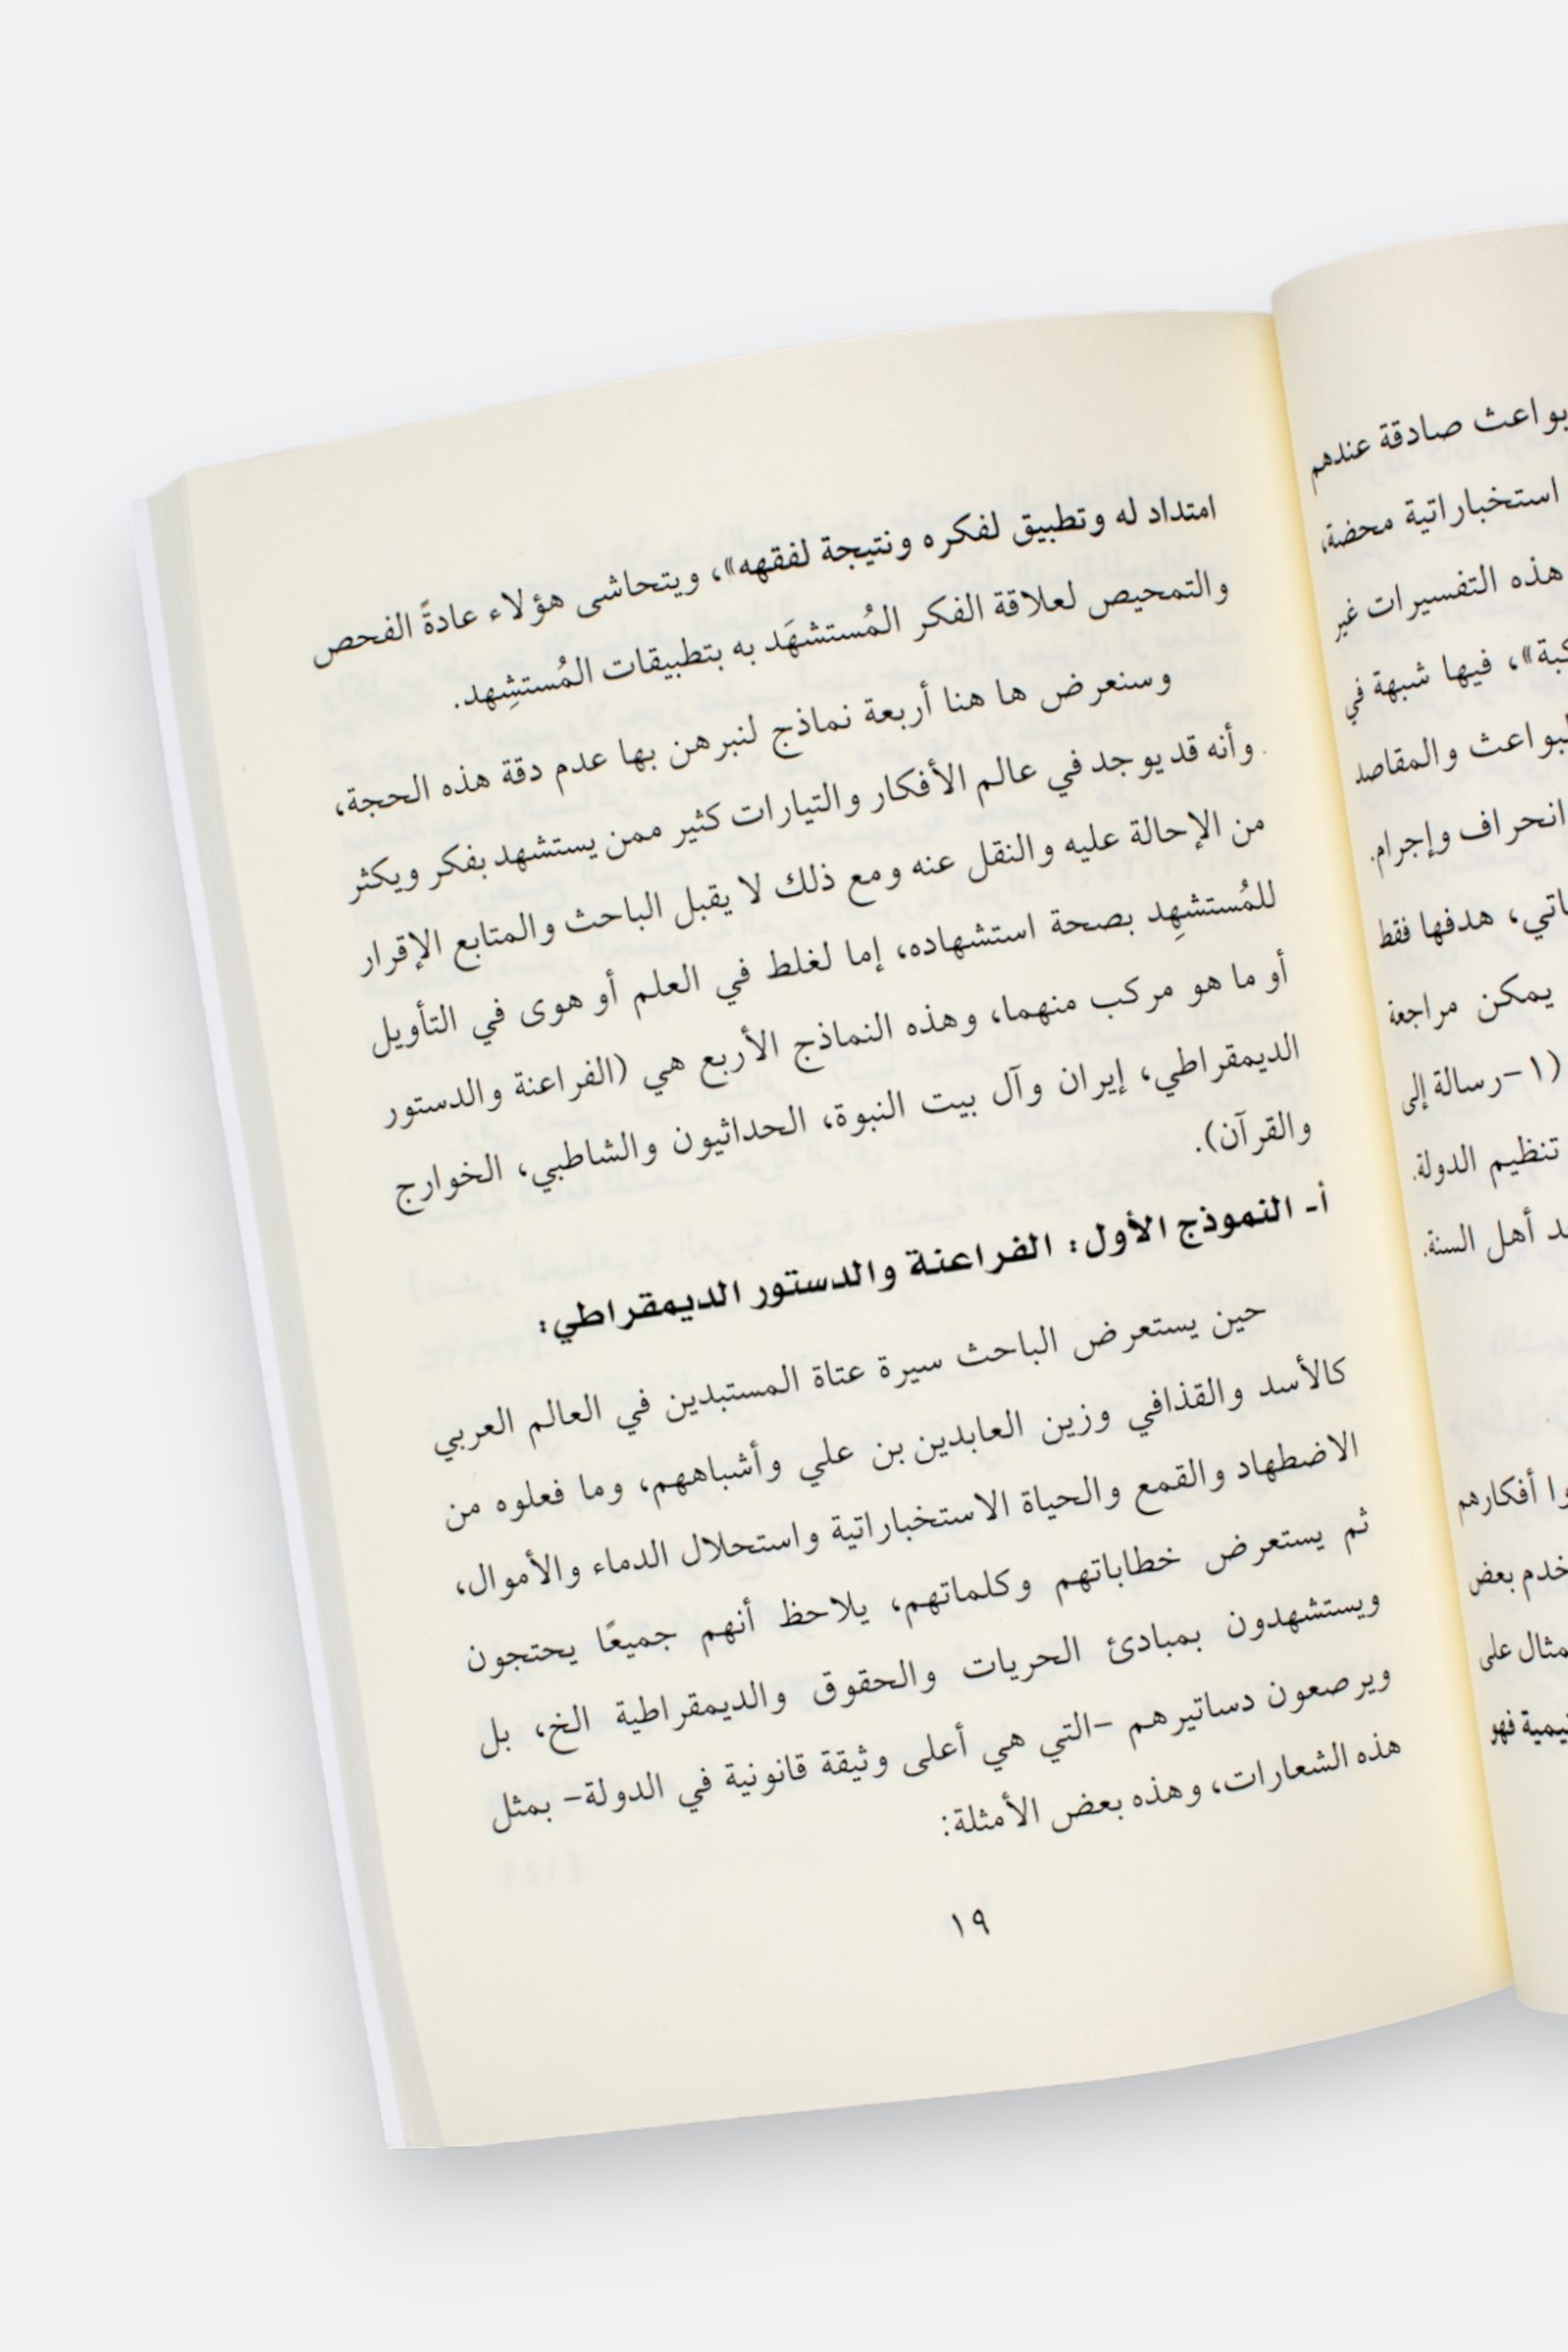 بواعث صادقة عندهم
استخباراتية محضة،
هذه التفسيرات غير
فيها شبهة في
والمقاصد
انحراف وإجرام.
هدفها فقط
يمكن مراجعة
(١-رسالة إلى
تنظيم الدولة.
أهل السنة.
أفكارهم
بعض
على
فهو
امتداد له وتطبيق لفكره ونتيجة لفقهه»، ويتحاشى هؤلاء عادةً الفحص
والتمحيص لعلاقة الفكر المُستشهَد به بتطبيقات المُستشِهد.
وسنعرض ها هنا أربعة نماذج لنبرهن بها عدم دقة هذه الحجة،
وأنه قد يوجد في عالم الأفكار والتيارات كثير ممن يستشهد بفكر ويكثر
من الإحالة عليه والنقل عنه ومع ذلك لا يقبل الباحث والمتابع الإقرار
للمُستشهِد بصحة استشهاده، إما لغلط في العلم أو هوى في التأويل
أو ما هو مركب منهما، وهذه النماذج الأربع هي (الفراعنة والدستور
الديمقراطي، إيران وآل بيت النبوة، الحداثيون والشاطبي، الخوارج
والقرآن).
أ- النموذج الأول: الفراعنة والدستور الديمقراطي:
حين يستعرض الباحث سيرة عتاة المستبدين في العالم العربي
كالأسد والقذافي وزين العابدين بن علي وأشباههم، وما فعلوه من
الاضطهاد والقمع والحياة الاستخباراتية واستحلال الدماء والأموال،
ثم يستعرض خطاباتهم وكلماتهم، يلاحظ أنهم جميعًا يحتجون
ويستشهدون بمبادئ الحريات والحقوق والديمقراطية الخ، بل
ويرصعون دساتيرهم -التي هي أعلى وثيقة قانونية في الدولة- بمثل
هذه الشعارات، وهذه بعض الأمثلة:
١٩